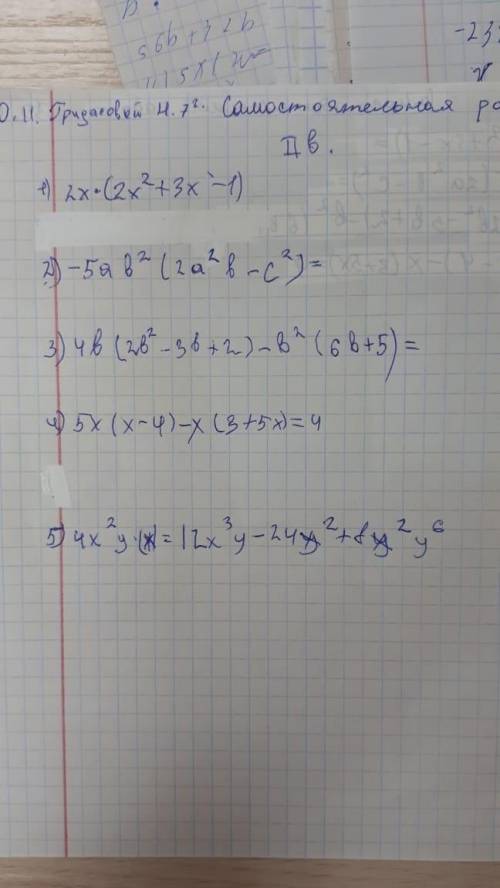 56b+32b
-23
Самостоятельная ра
II в.
1) 2x·(2x²+3x-1)
2) -5ab²(2a²b-c²)=
3) 4b(2b²-3b+2)-b²(6b+5)=
4) 5x(x-4)-x(3+5x)=4
5) 4x²y·(x)=12x³y-24y²+8y²y⁶